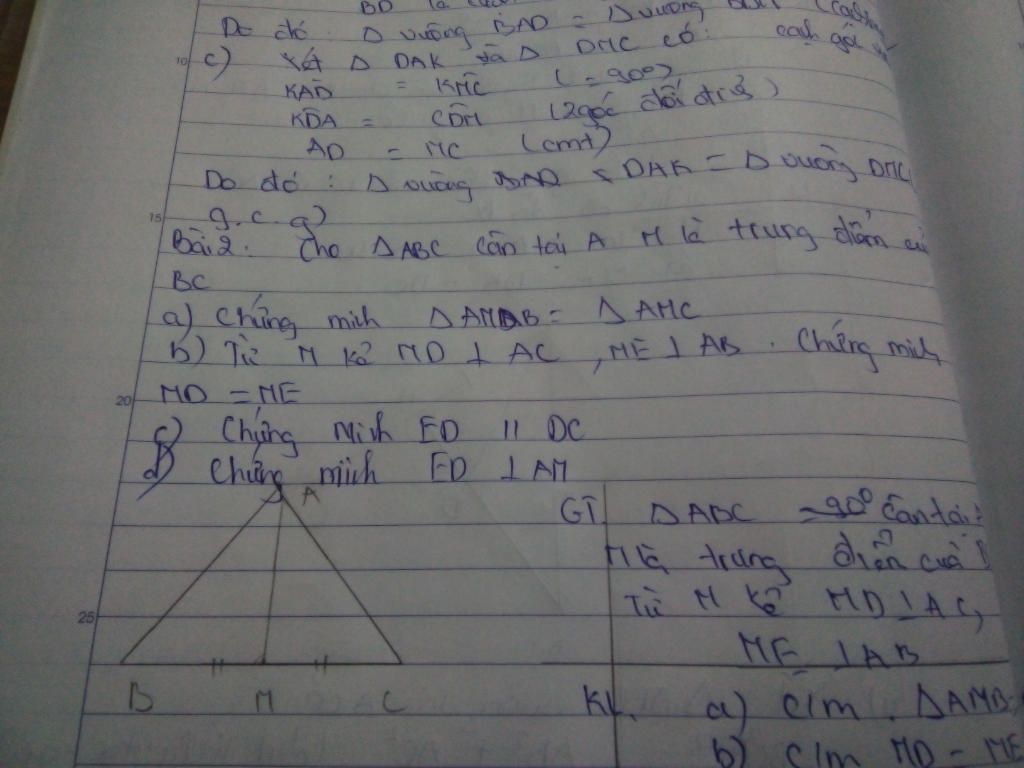 BD là
Do đó: Δ vuông BAD = Δ vuông
c) Xét Δ DAK và Δ DMC có: cạnh góc
KAD = KMC (=90°)
KDA = CDM (2 góc đối đỉnh)
AD = MC (cmt)
Do đó: Δ vuông DAK = Δ vuông DMC
g.c.g)
Bài 2: Cho ΔABC cân tại A M là trung điểm củ
BC
a) Chứng minh ΔAMB = ΔAMC
b) Từ M kẻ MD ⊥ AC, ME ⊥ AB. Chứng minh
MD = ME
c) Chứng Minh ED // DC
d) Chứng minh ED ⊥ AM
A
B M C
GT ΔABC =90° cân tại
M là trung điểm của
Từ M kẻ MD ⊥ AC,
ME ⊥ AB
KL a) C/m. ΔAMB=
b) C/m MD = ME
10
15
20
25